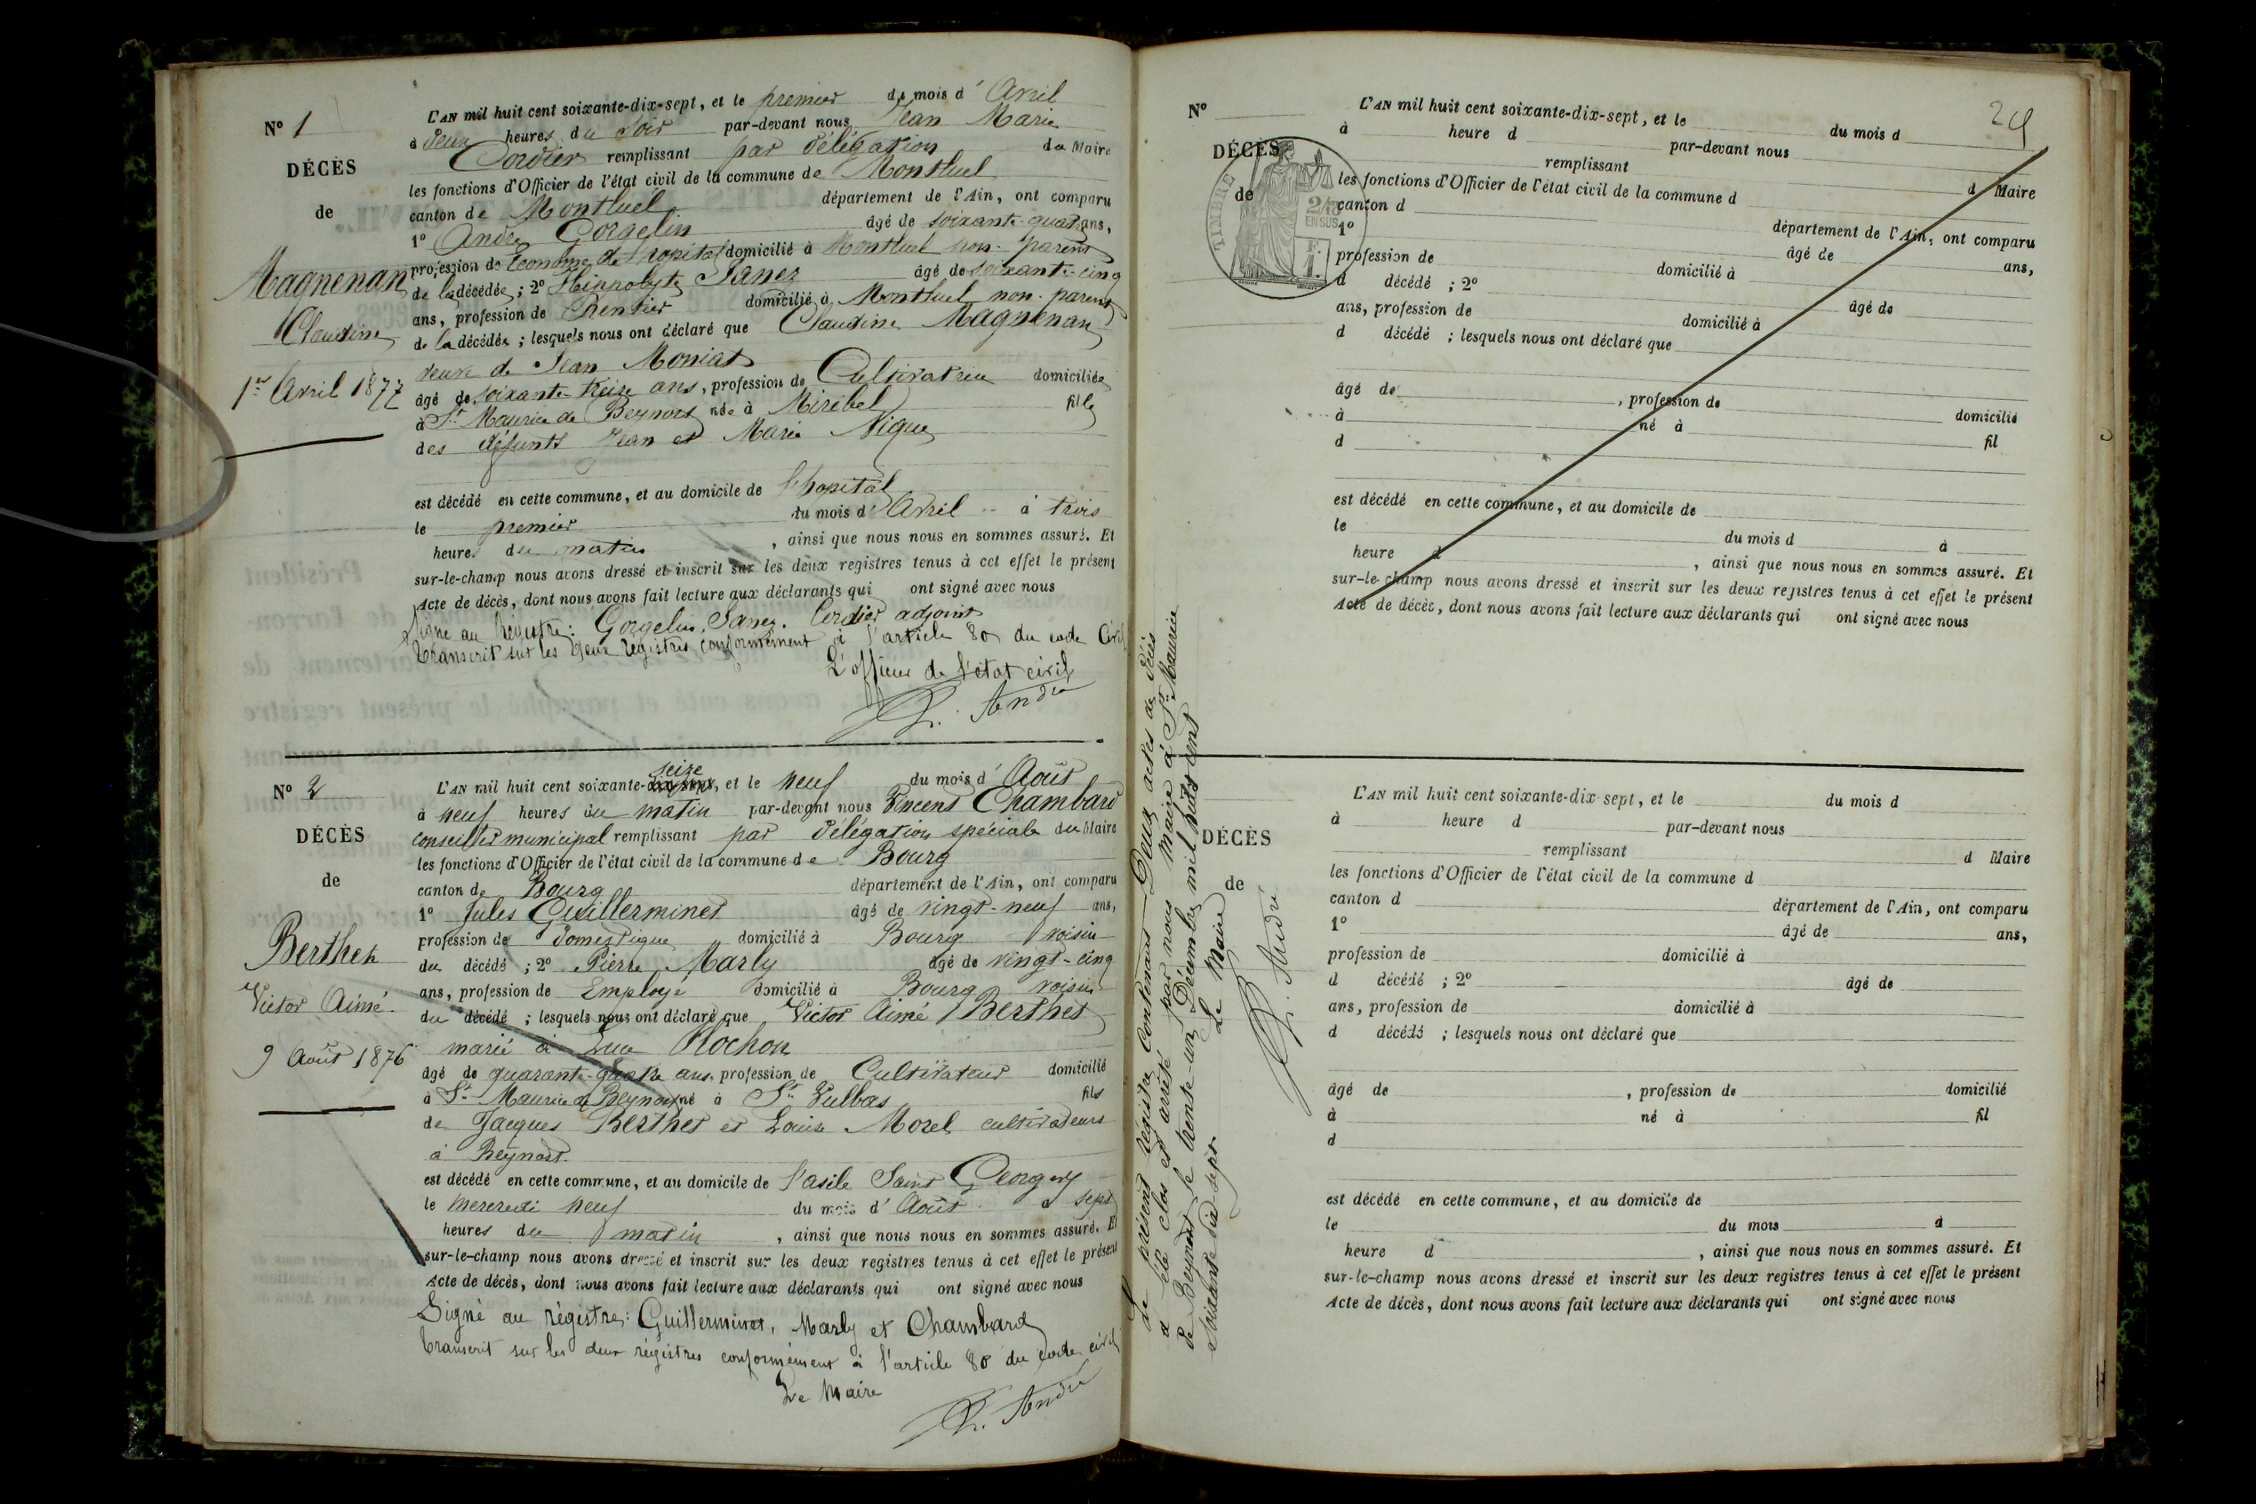 Nº 1
DÉCÈS
de
Magnenan
Claudine
1er Avril 1877
L'AN mil huit cent soixante-dix-sept, et le premier du mois d'Avril
à deux heures du Soir par-devant nous Jean Marie
Cordier remplissant par délégation du Maire
les fonctions d'Officier de l'état civil de la commune de Montluel
canton de Montluel département de l'Ain, ont comparu
1º André Gorgelin âgé de soixante-quatre ans,
profession de Econome de l'hopital domicilié à Montluel non-parent
de la décédée ; 2º Hippolyte Sanez âgé de soixante-cinq
ans, profession de Rentier domicilié à Montluel non-parent
de la décédée ; lesquels nous ont déclaré que Claudine Magnenan
veuve de Jean Moniat
âgé de soixante-treize ans, profession de Cultivatrice domiciliée
à St Maurice de Beynost née à Miribel fille
des défunts Jean et Marie Nique
est décédé en cette commune, et au domicile de l'hopital
le premier du mois d'Avril à trois
heures du matin, ainsi que nous nous en sommes assuré. Et
sur-le-champ nous avons dressé et inscrit sur les deux registres tenus à cet effet le présent
Acte de décès, dont nous avons fait lecture aux déclarants qui ont signé avec nous
Signé au Régistre : Gorgelin, Sanez. Cordier adjoint
Transcrit sur les deux régistres conformément à l'article 80 du code Civil
L'officier de l'état civil
André
Nº 2
DÉCÈS
de
Berthet
Victor Aimé.
9 Août 1876
L'AN mil huit cent soixante-dix-sept, seize et le neuf du mois d'Août
à neuf heures du matin par-devant nous Vincent Chambard
conseiller municipal remplissant par délégation spéciale du Maire
les fonctions d'Officier de l'état civil de la commune de Bourg
canton de Bourg département de l'Ain, ont comparu
1º Jules Guillerminet âgé de vingt-neuf ans,
profession de domestique domicilié à Bourg voisin
du décédé ; 2º Pierre Marly âgé de vingt-cinq
ans, profession de Employé domicilié à Bourg voisin
du décédé ; lesquels nous ont déclaré que Victor Aimé Berthet
marié à Luce Rochon
âgé de quarante-quatre ans, profession de Cultivateur domicilié
à St Maurice de Beynost né à St Vulbas fils
de Jacques Berthet et Louise Morel cultivateurs
à Beynost.
est décédé en cette commune, et au domicile de l'asile Saint Georges
le mercredi neuf du mois d'Août à sept
heures du matin, ainsi que nous nous en sommes assuré. Et
sur-le-champ nous avons dressé et inscrit sur les deux registres tenus à cet effet le présent
Acte de décès, dont nous avons fait lecture aux déclarants qui ont signé avec nous
Signé au régistre : Guillerminet, Marly et Chambard
Transcrit sur les deux régistres conformément à l'article 80 du code civil
Le Maire
André
Le présent régistre contenant Deux actes de décès
a été clos et arrêté par nous Maire à St Maurice
de Beynost le trente-un Décembre mil huit cent
soixante-dix-sept. Le Maire
André
24
Nº
DÉCÈS
de
TIMBRE
2/10
EN SUS
L'AN mil huit cent soixante-dix-sept, et le du mois d
à heure d par-devant nous
remplissant d Maire
les fonctions d'Officier de l'état civil de la commune d
canton d département de l'Ain, ont comparu
1º âgé de ans,
profession de domicilié à
d décédé ; 2º âgé de
ans, profession de domicilié à
d décédé ; lesquels nous ont déclaré que
âgé de , profession de domicilié
à né à fil
d
est décédé en cette commune, et au domicile de
le du mois d à
heure d , ainsi que nous nous en sommes assuré. Et
sur-le-champ nous avons dressé et inscrit sur les deux registres tenus à cet effet le présent
Acte de décès, dont nous avons fait lecture aux déclarants qui ont signé avec nous
DÉCÈS
de
L'AN mil huit cent soixante-dix sept, et le du mois d
à heure d par-devant nous
remplissant d Maire
les fonctions d'Officier de l'état civil de la commune d
canton d département de l'Ain, ont comparu
1º âgé de ans,
profession de domicilié à
d décédé ; 2º âgé de
ans, profession de domicilié à
d décédé ; lesquels nous ont déclaré que
âgé de , profession de domicilié
à né à fil
d
est décédé en cette commune, et au domicile de
le du mois à
heure d , ainsi que nous nous en sommes assuré. Et
sur-le-champ nous avons dressé et inscrit sur les deux registres tenus à cet effet le présent
Acte de décès, dont nous avons fait lecture aux déclarants qui ont signé avec nous